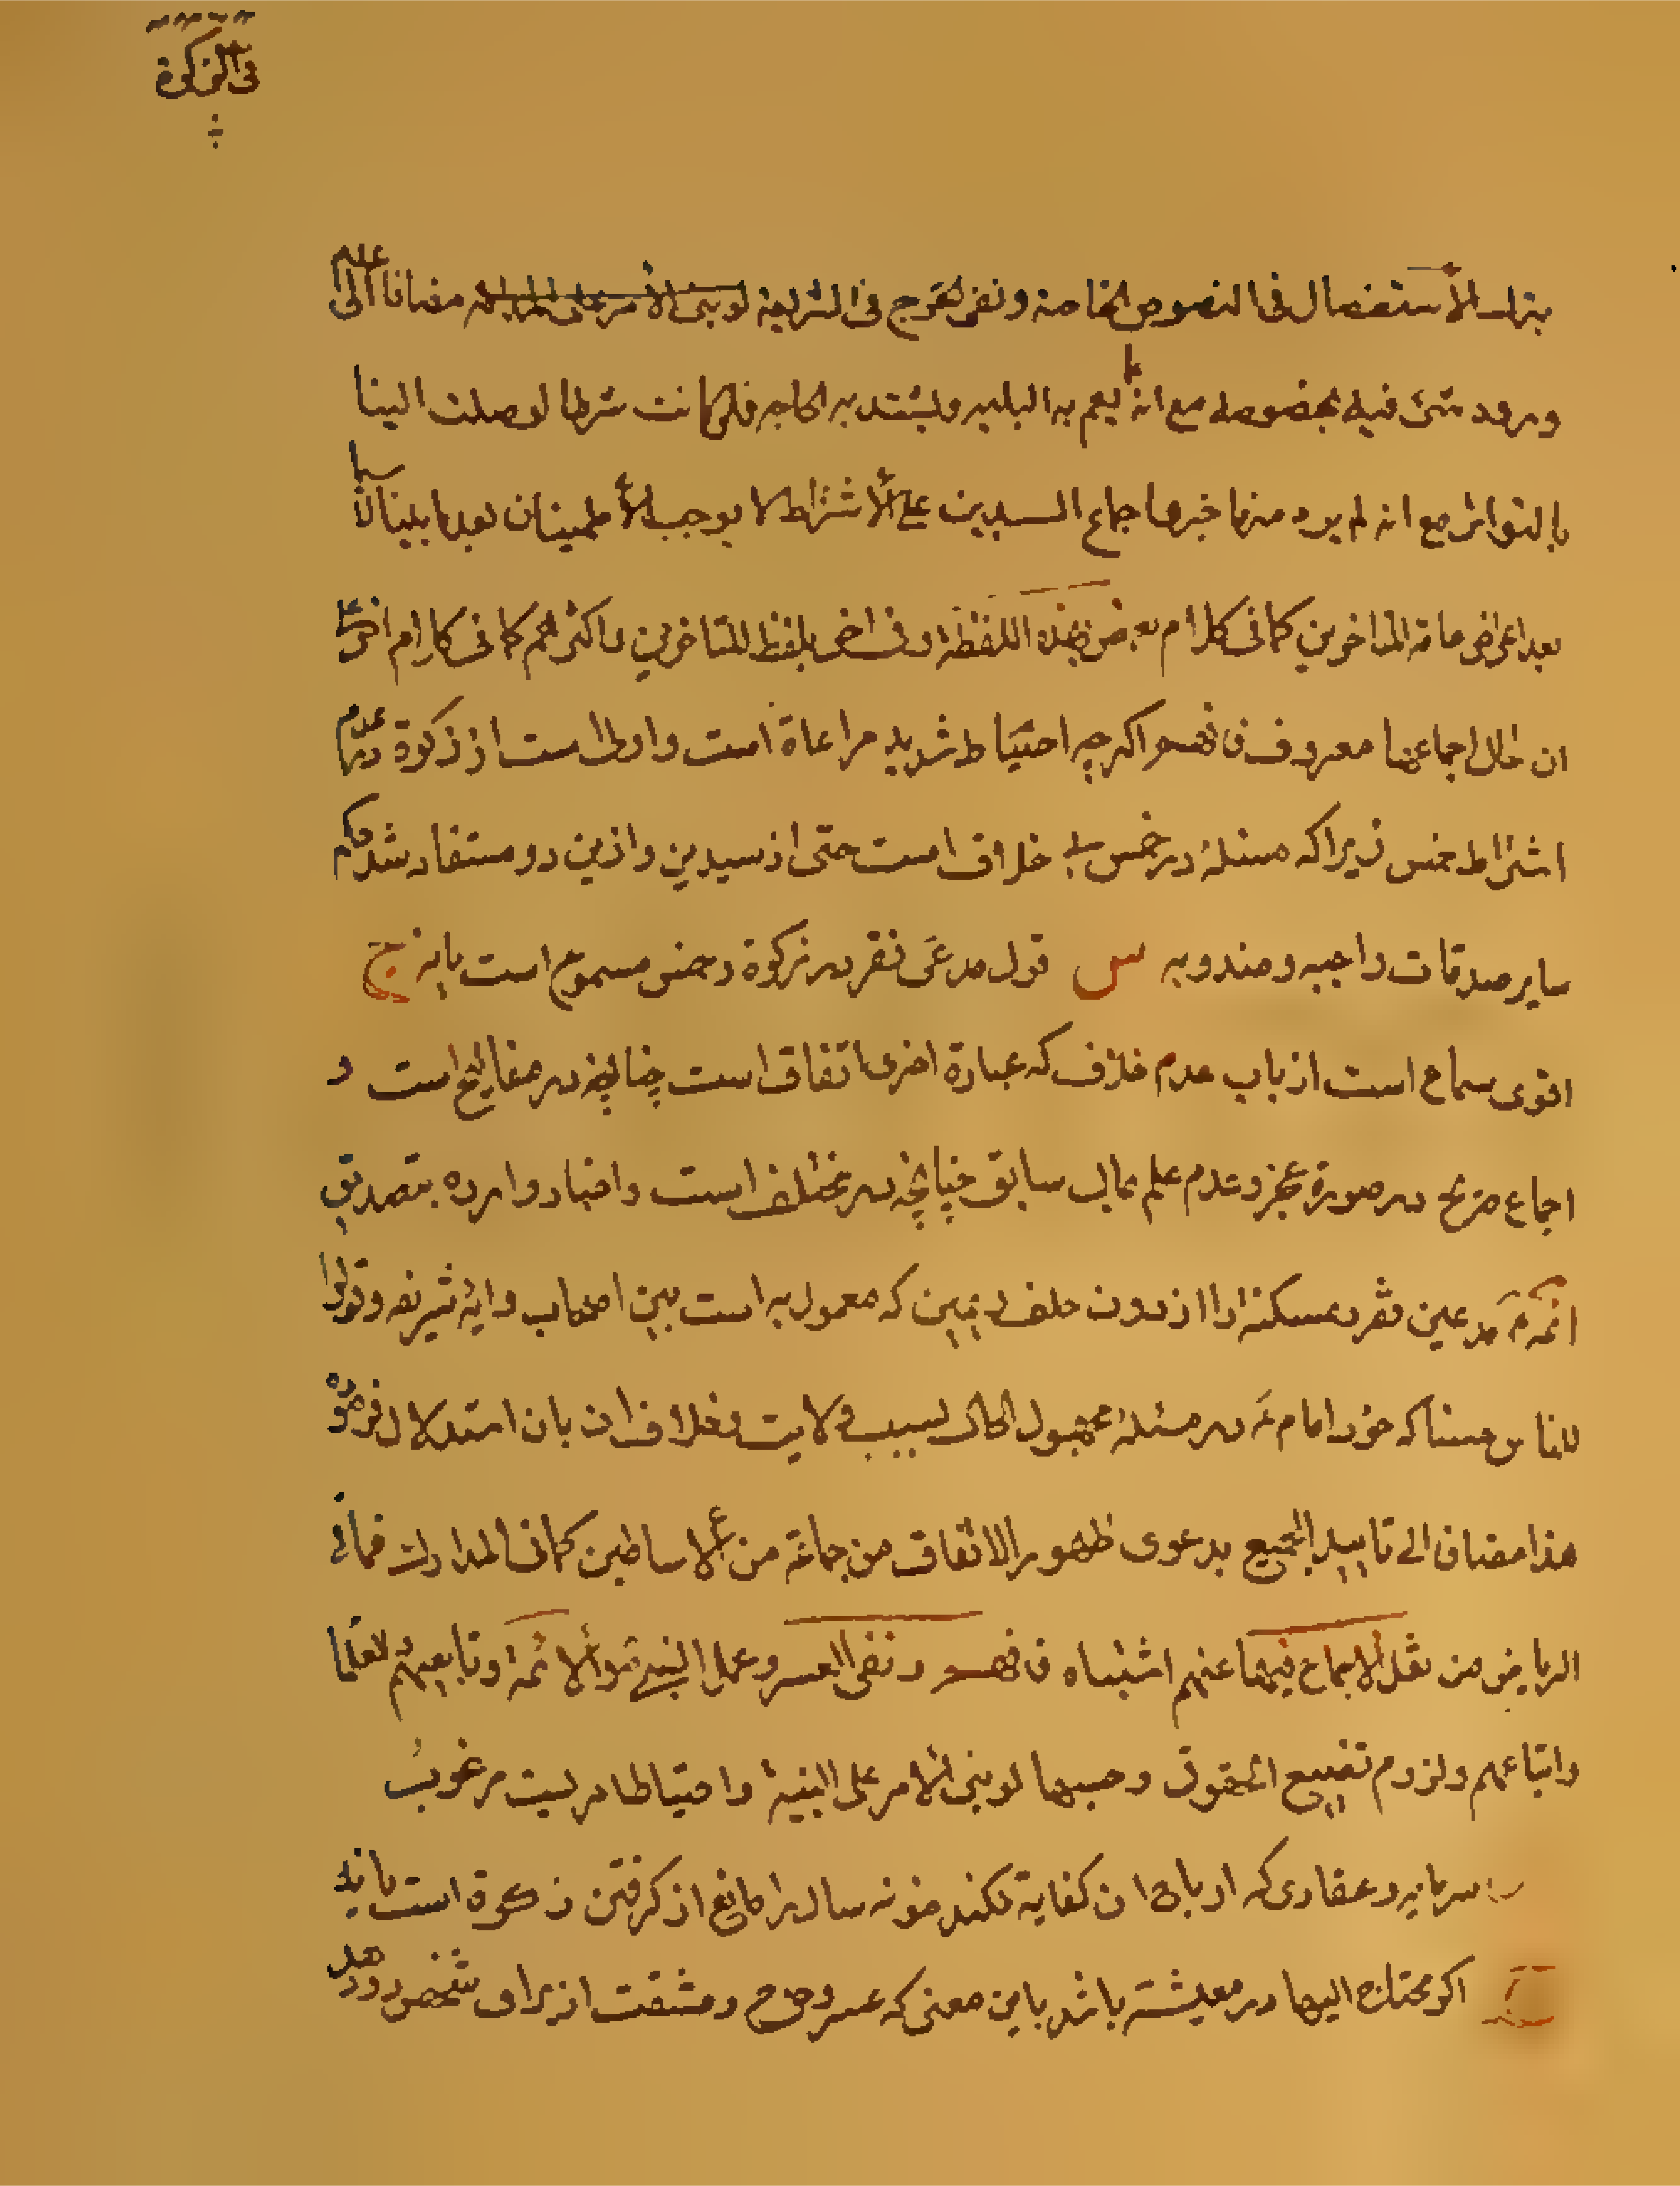 فی الزکوة
بترك الاستفصال فی النصوص الخاصة و نفی الحرج فی الشریعة لو بنی الامر علی مضافا الی عدم
ورود شیء فیه بخصوصه مع انه یعم به البلیه و یشتد به الحاجه فلو کانت شرطا لوصلت الینا
بالتواتر مع انه لم یرد منها خبر و اجماع السیدین علی الاشتراط لا یوجب الاطمینان بعدما بلینا لا سیما
بعد اعراض عامة المتاخرین کما فی کلام بعض بهذه اللفظة او فی اخر بلفظ المتاخرین و اکثرهم کما فی کلام اخر علی
ان حال اجماعهما معروف فافهم اگرچه احتیاط شدید مراعاة است و اولی است از زکوة در عدم
اشتراط خمس زیرا که مسئله در خمس بی خلاف است حتی از سیدین و ازین دو مستفاد شد حکم
سایر صدقات واجبه و مندوبه س قول مدعی فقر در زکوة و خمس مسموع است یا نه ج
اقوی سماع است از باب عدم خلاف که عبارة اخری اتفاق است چنانچه در مفاتیح است و
اجماع صریح در صورة عجز و عدم علم بمال سابق چنانچه در مختلف است و اخبار وارده بتصدیق
ائمه مدعین فقر و مسکنة را از دون حلف و یمین که معمول به است بین اصحاب و ایة شریفه و قولوا
للناس حسنا که خود امام در مسئله مجهول الحال بسبب ولایت و خلاف ان بان استدلال فرموده
هذا مضاف الی تایید الجمیع بدعوی ظهور الاتفاق من جماعة من الاساطین کما فی المدارك فما فی
الریاض من نقل الاجماع فیهما عنهم اشتباه فافهم و نفی العسر و عمل النبی و الائمة و تابعیهم و العلما
و اتباعهم و لزوم تضییع الحقوق و حبسها لو بنی الامر علی البینة و احتیاطا مر لیست مرغوب
س سرمایه و عقاری که ارباح ان کفایة نکند مؤنه سال را مانع از گرفتن زکوة است یا نه
ج اگر محتاج الیها در معیشة باشد باین معنی که عسر و حرج و مشقت از برای شخص رو دهد